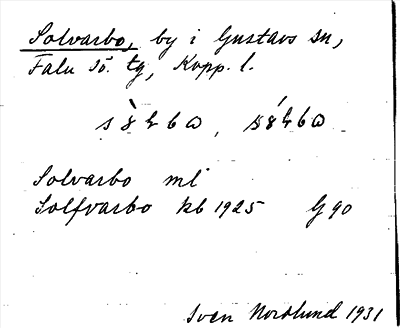 Solvarbo, by i Gustavs sn,
Falu sö. tg, Kopp. l.
Solvarbo ml
Solfvarbo kb 1925 G 90
Sven Norslund 1931